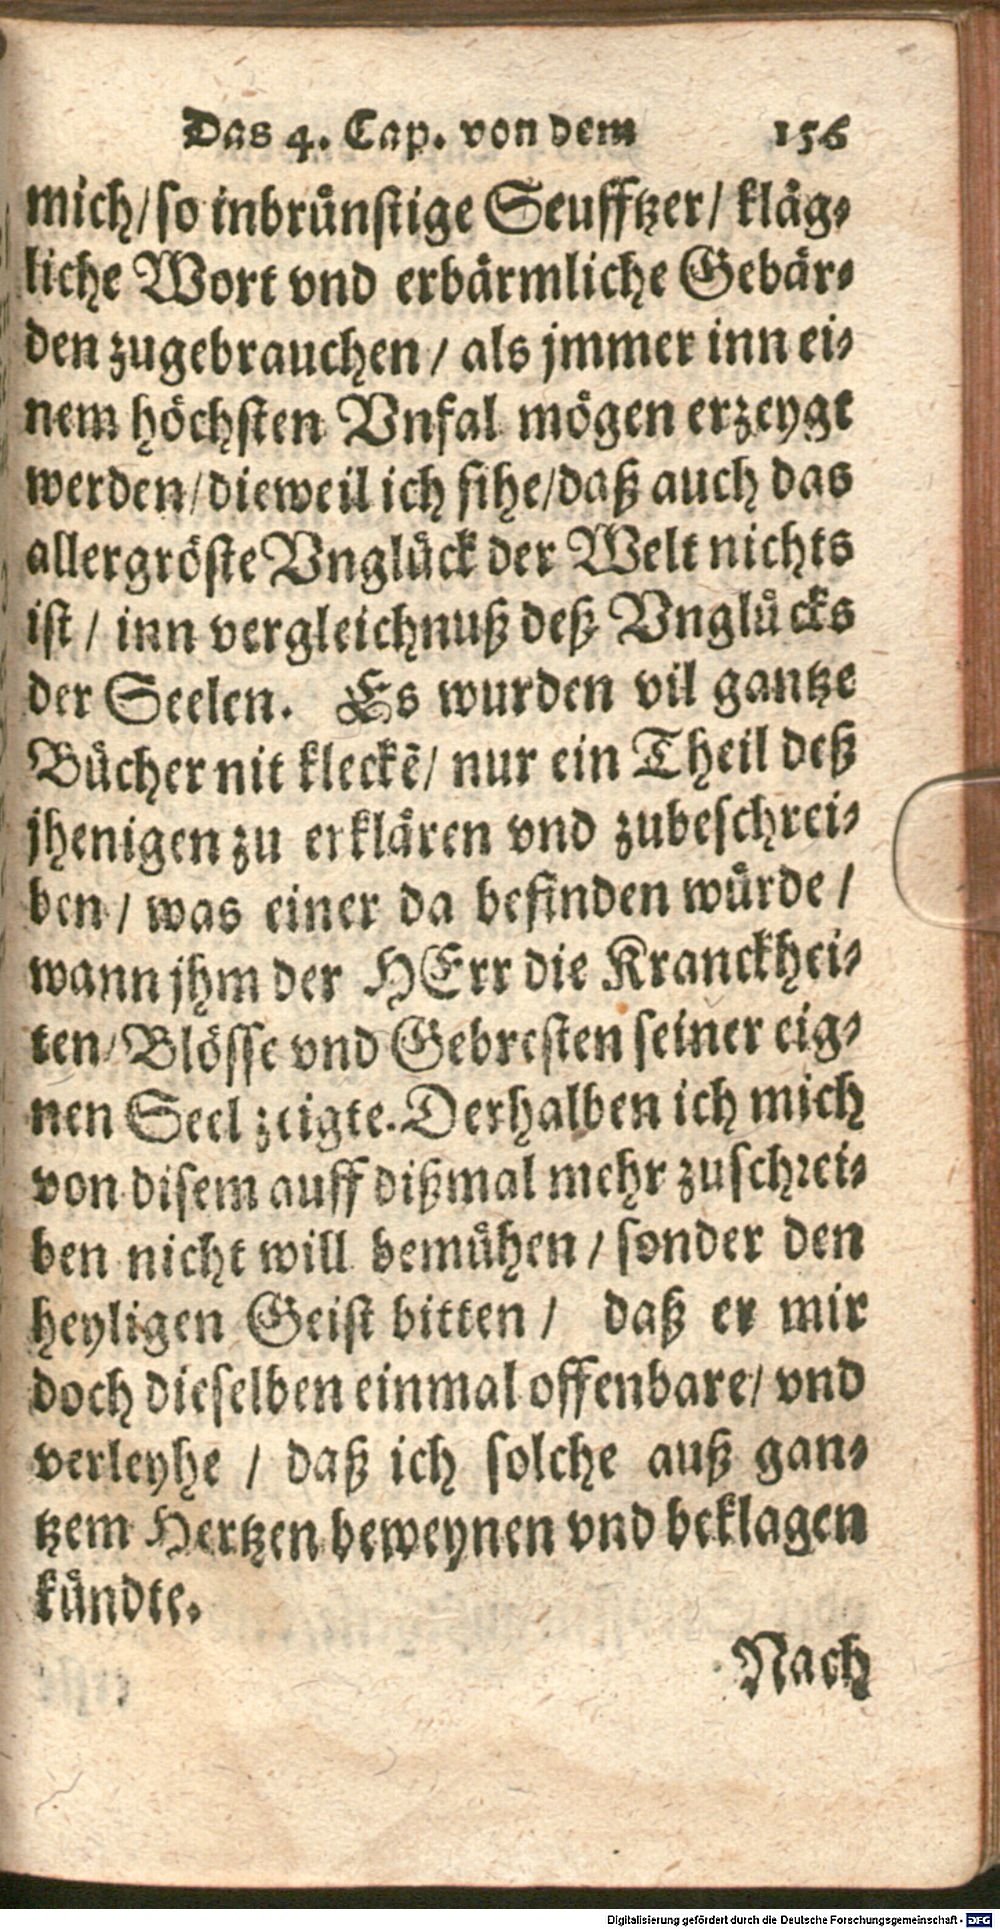 Das 4. Cap. von dem 156
mich/ so inbrünstige Seufftzer/ kläg-
liche Wort vnd erbärmliche Gebär-
den zugebrauchen / als jmmer inn ei-
nem höchsten Vnfal mögen erzeygt
werden/ dieweil ich sihe/ daß auch das
allergröste Vnglück der Welt nichts
ist / inn vergleichnuß deß Vnglücks
der Seelen. Es wurden vil gantze
Bücher nit kleckẽ/ nur ein Theil deß
jhenigen zu erklären vnd zubeschrei-
ben / was einer da befinden würde /
wann jhm der HErr die Kranckhei-
ten/ Blösse vnd Gebresten seiner eig-
nen Seel zeigte. Derhalben ich mich
von disem auff dißmal mehr zuschrei-
ben nicht will bemühen / sonder den
heyligen Geist bitten / daß er mir
doch dieselben einmal offenbare/ vnd
verleyhe / daß ich solche auß gan-
tzem Hertzen beweynen vnd beklagen
kündte.
Nach
Digitalisierung gefördert durch die Deutsche Forschungsgemeinschaft - DFG